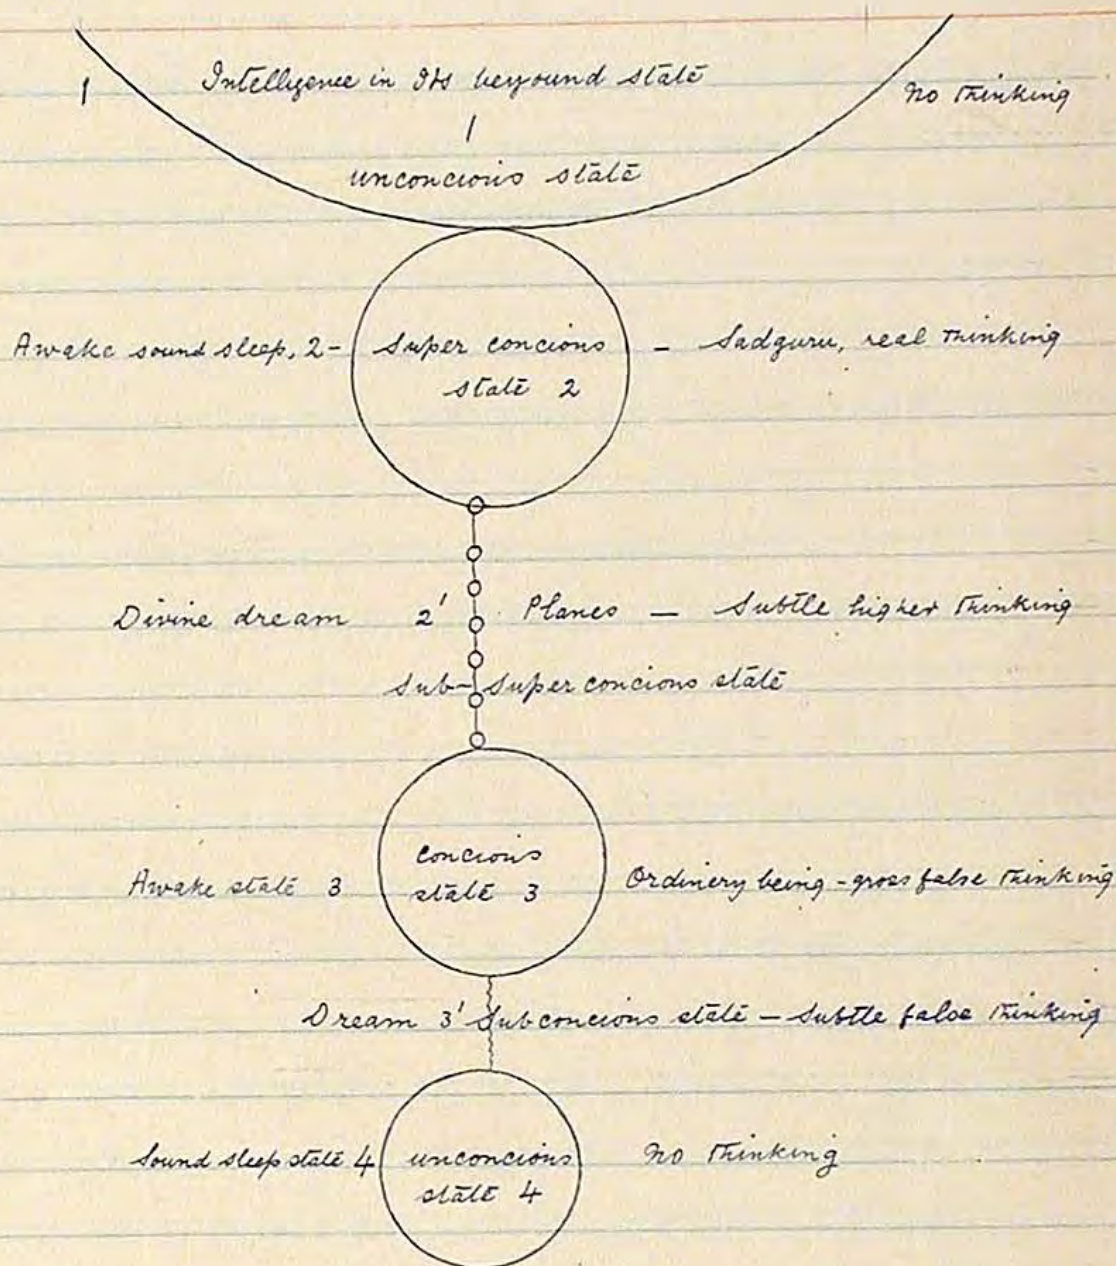 1 Intelligence in Its beyound state No thinking
1
unconcious state
Awake sound sleep, 2- Super concious - Sadguru, real thinking
state 2
Divine dream 2' Planes - Subtle higher thinking
Sub-Super concious state
concious
Awake state 3 state 3 Ordinery being - gross false thinking
Dream 3' Subconcious state - Subtle false thinking
Sound sleep state 4 unconcious No thinking
state 4